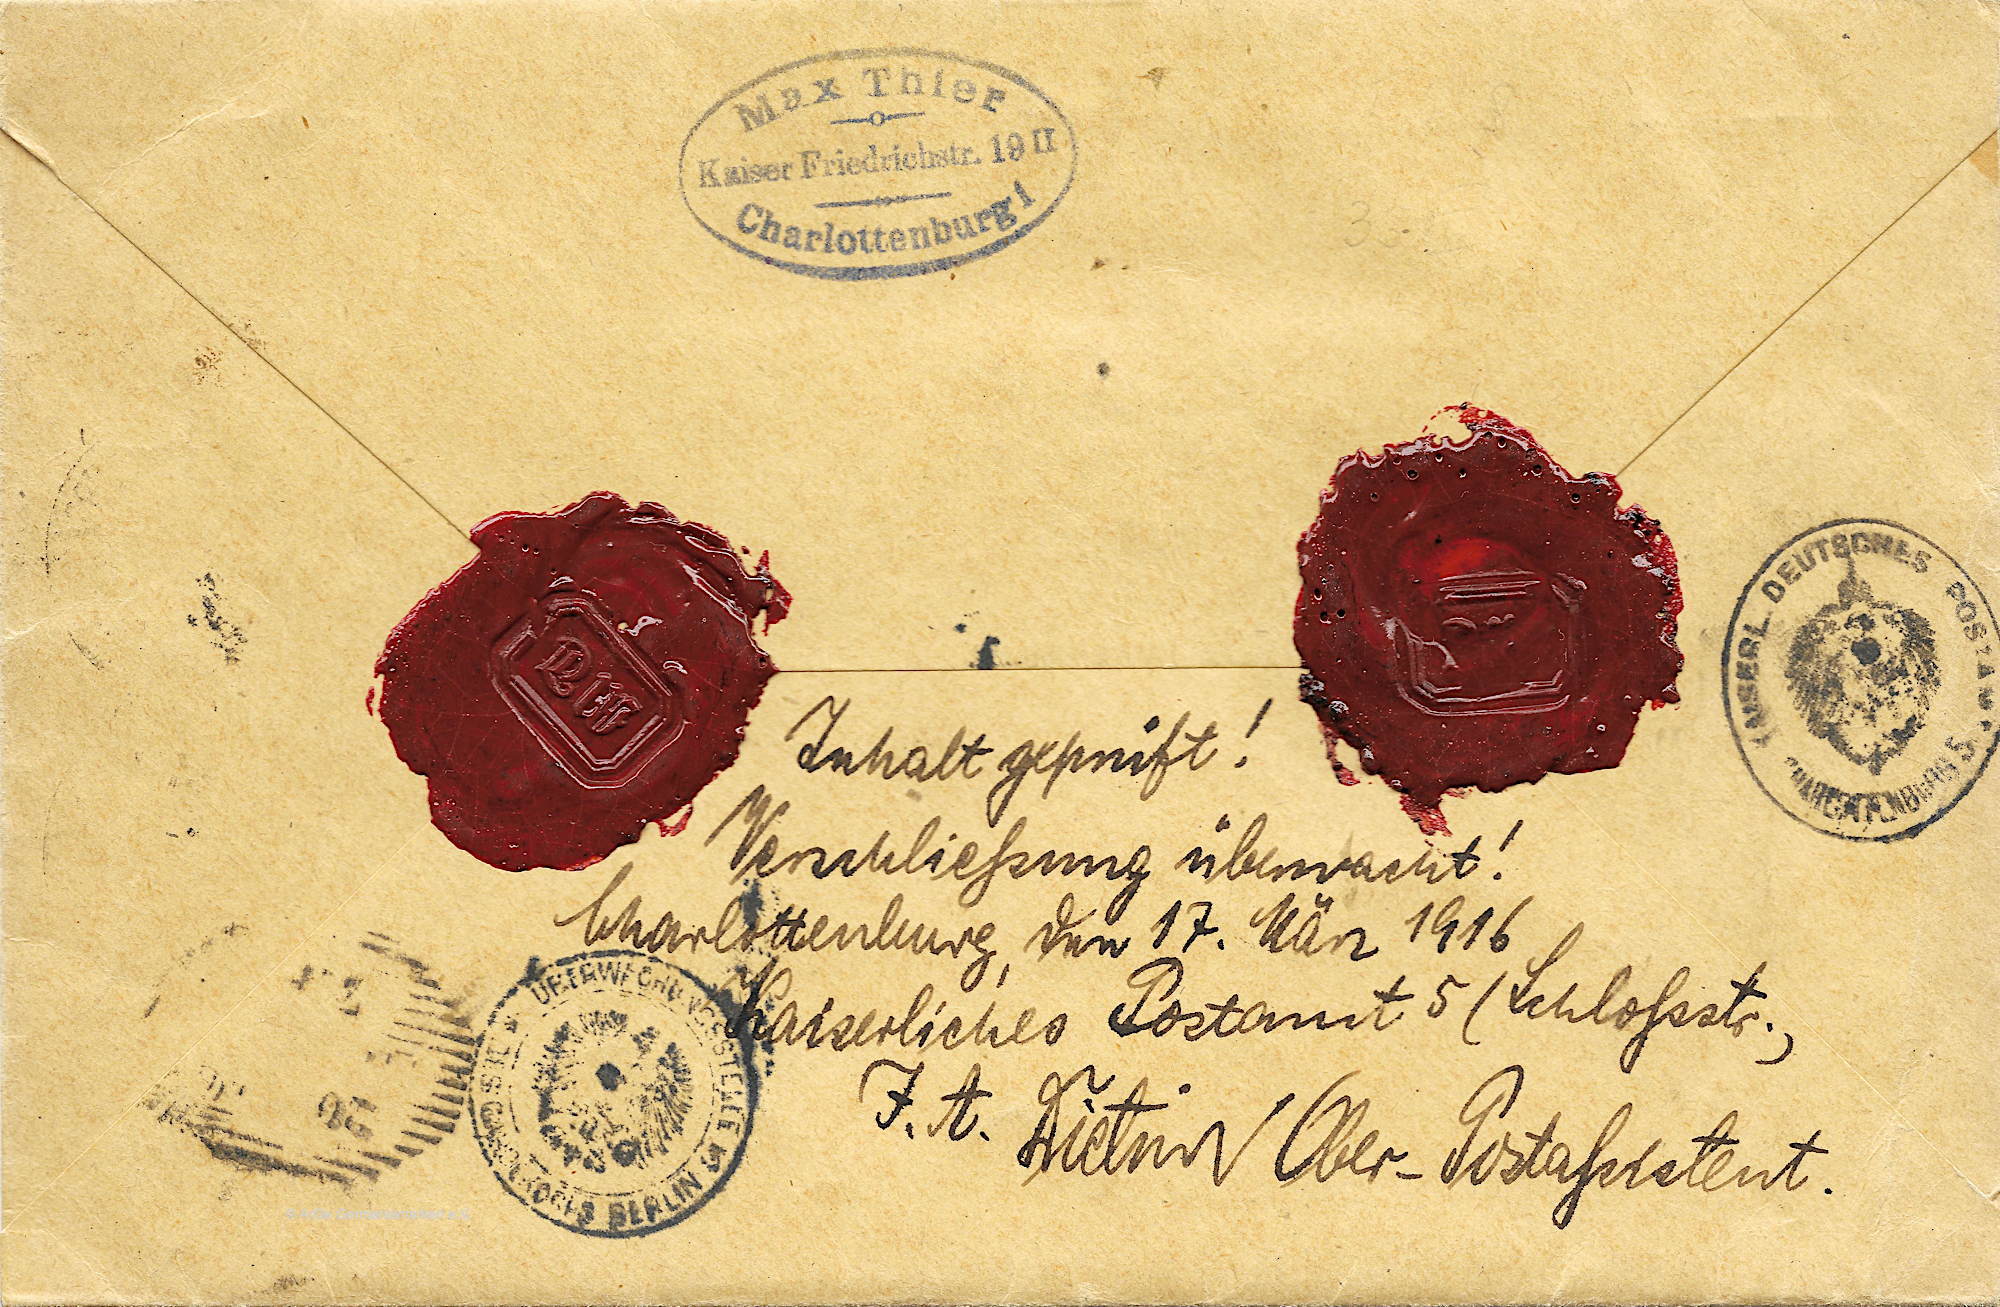 Max Thier
Kaiser Friedrichstr. 19 II
Charlottenburg 1
KAISERL. DEUTSCHES POSTAMT
CHARLOTTENBURG 5
Inhalt geprüft!
Verschließung überwacht!
Charlottenburg, den 17. März 1916
Kaiserliches Postamt 5 (Schloßstr.)
I. A.
Ober-Postassistent.
BERLIN